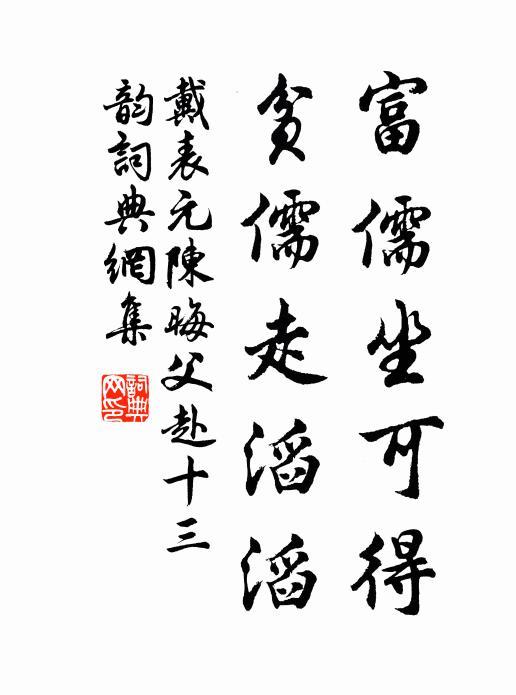 富儒坐可得
貧儒走滔滔
戴表元陳晦父赴十三
韵詞典網集
詞典網印